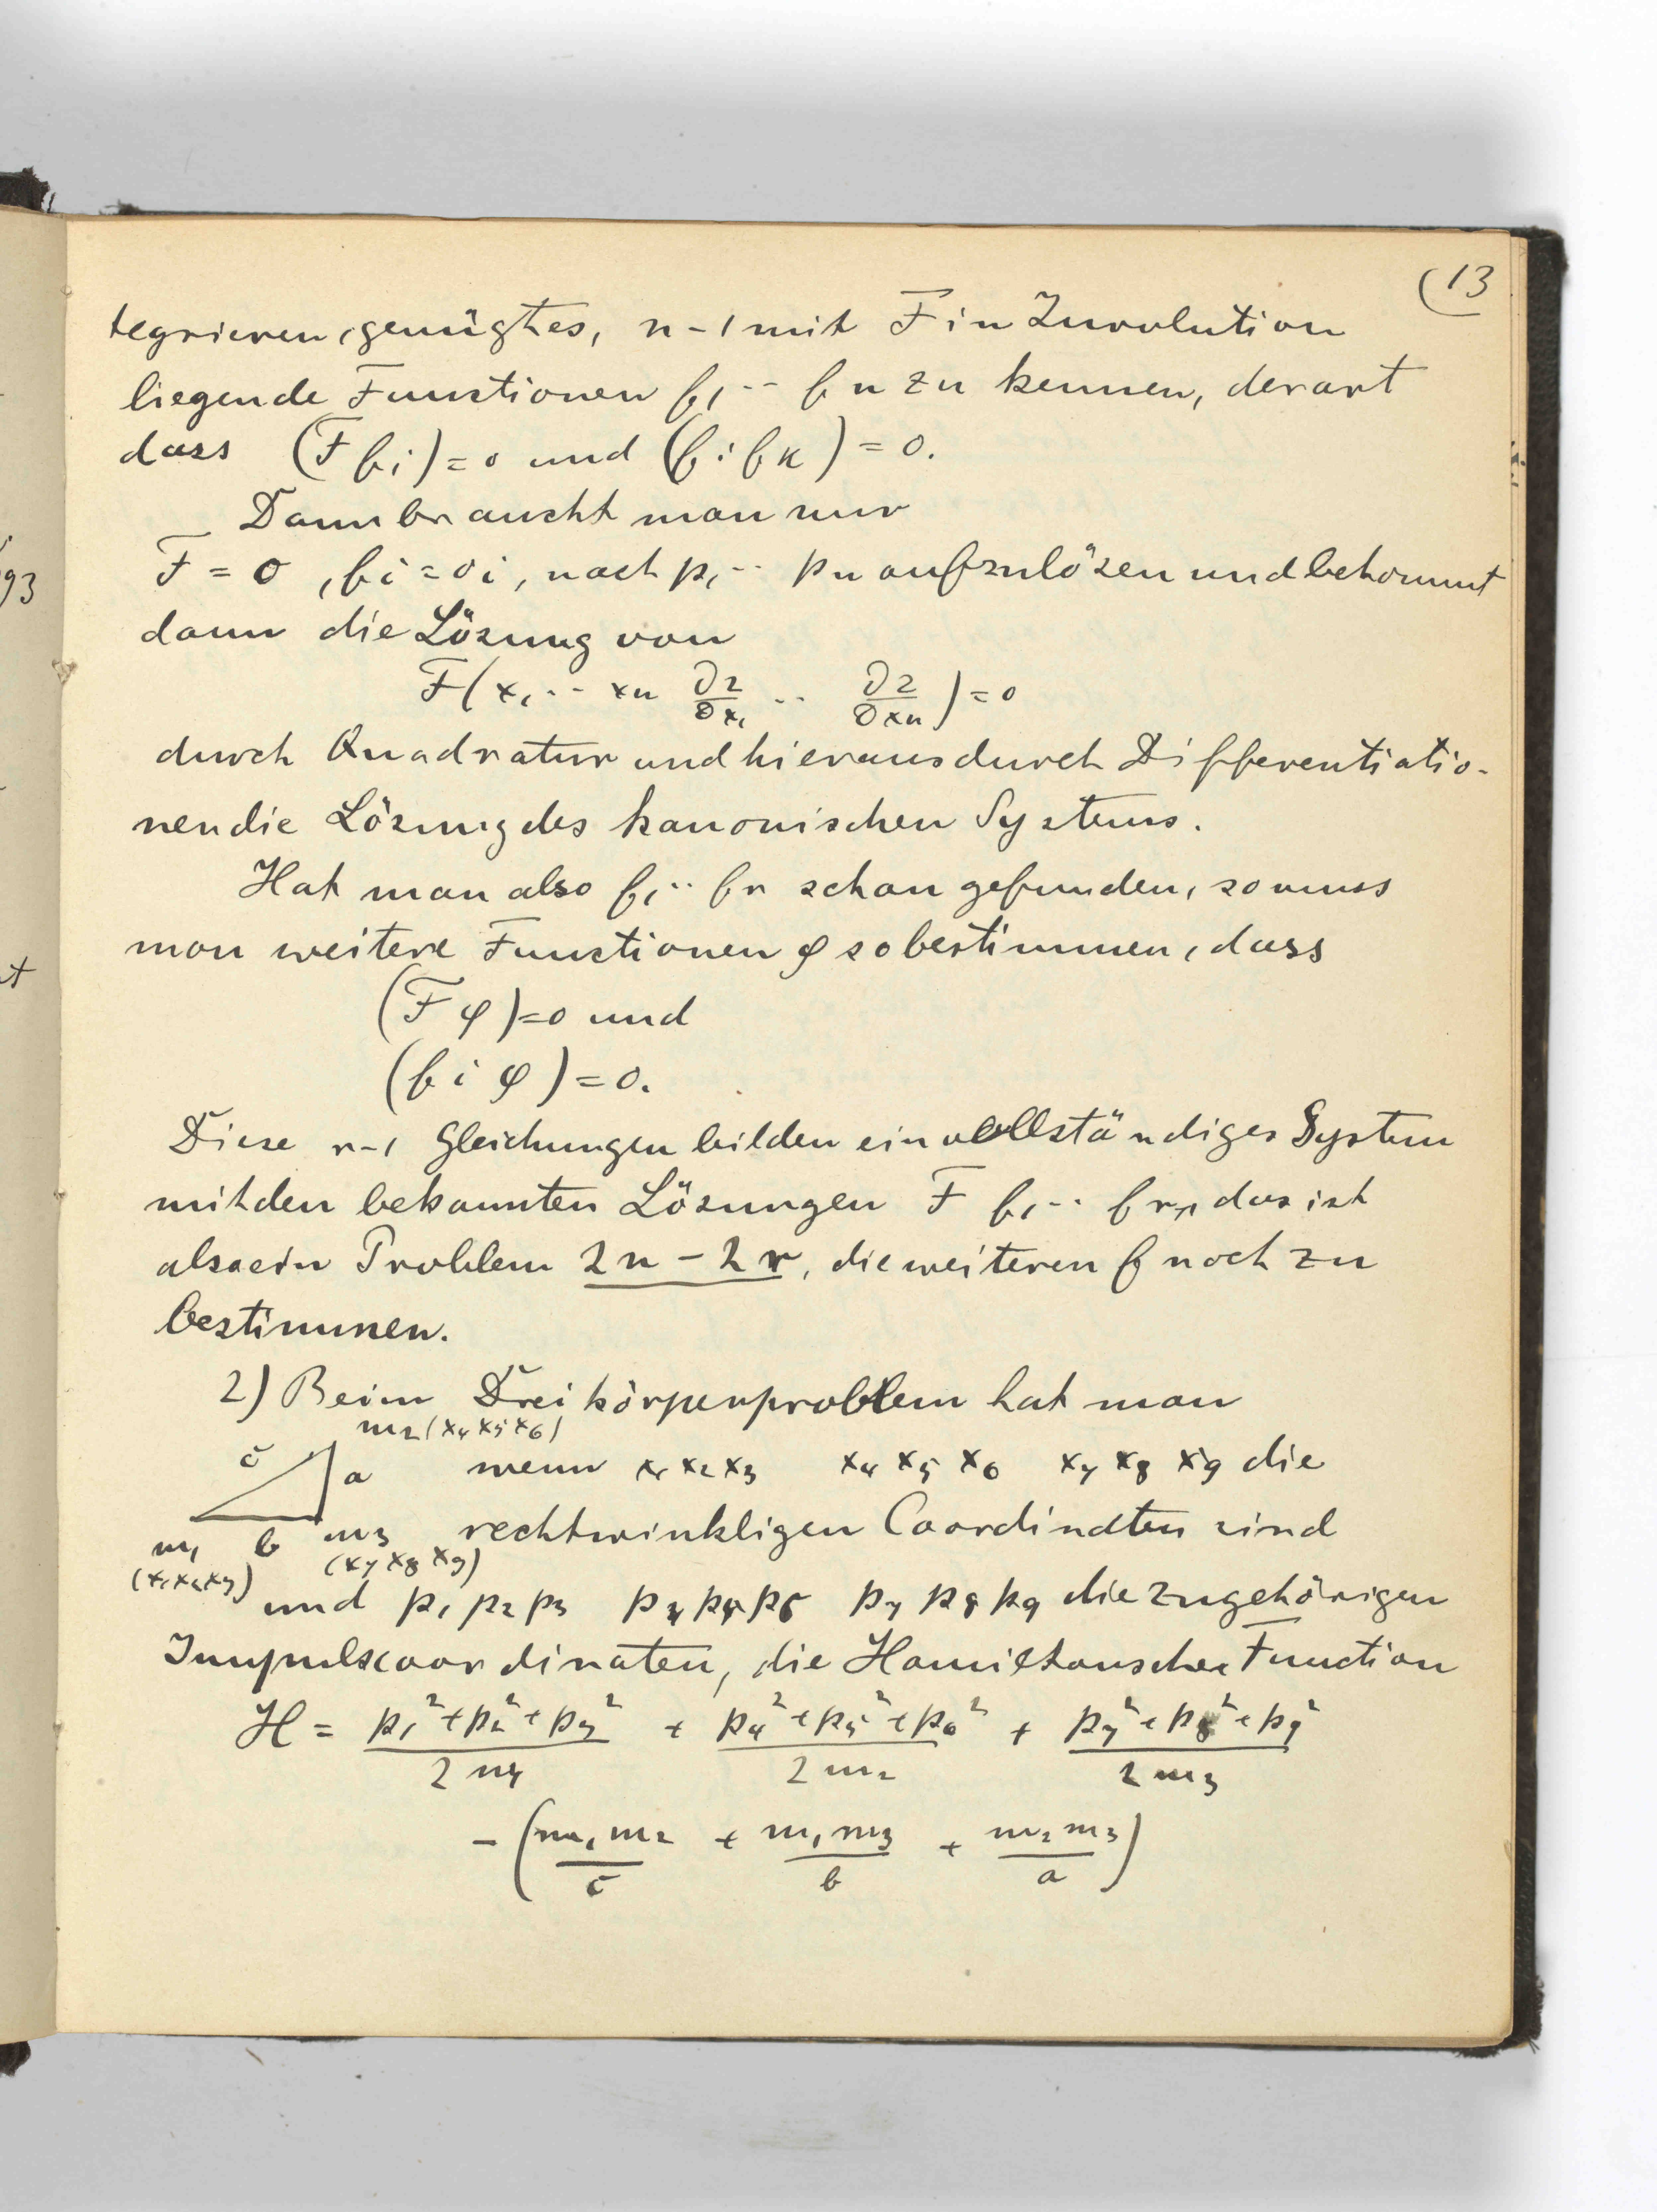 (13
tegrieren, genügt es, n-1 mit F in Involution
liegende Functionen f₁ ·· fn zu kennen, derart
dass (F fi) = 0 und (fi fk) = 0.
Dann braucht man nur
F = 0, fi = ci, nach p₁ ·· pn aufzulösen und bekommt
dann die Lösung von
F(x₁ ·· xn ∂z/∂x₁ ·· ∂z/∂xn) = 0
durch Quadratur und hieraus durch Differentiatio-
nen die Lösung des kanonischen Systems.
Hat man also f₁ ·· fr schon gefunden, so muss
man weitere Functionen φ so bestimmen, dass
(F φ) = 0 und
(fi φ) = 0.
Diese r-1 Gleichungen bilden ein vollständiges System
mit den bekannten Lösungen F f₁ ·· fr, das ist
also ein Problem 2n - 2r, die weiteren f noch zu
bestimmen.
2) Beim Dreikörperproblem hat man
m₂ (x₄ x₅ x₆)
c a wenn x₁ x₂ x₃ x₄ x₅ x₆ x₇ x₈ x₉ die
m₁ b m₃ rechtwinkligen Coordinaten sind
(x₁ x₂ x₃) (x₇ x₈ x₉)
und p₁ p₂ p₃ p₄ p₅ p₆ p₇ p₈ p₉ die zugehörigen
Impulscoordinaten, die Hamiltonsche Function
H = (p₁² + p₂² + p₃²)/(2 m₁) + (p₄² + p₅² + p₆²)/(2 m₂) + (p₇² + p₈² + p₉²)/(2 m₃)
- (m₁ m₂/c + m₁ m₃/b + m₂ m₃/a)